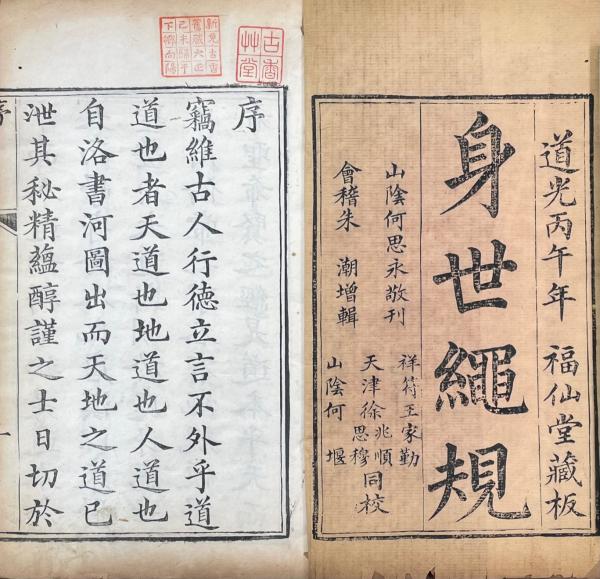 道光丙午年 福仙堂藏板
身世繩規
山陰何思永敬刊
會稽朱 潮增輯
祥符王家勤
天津徐兆順思穆同校
山陰何 堰
古香艸堂
序
竊維古人行德立言不外乎道
道也者天道也地道也人道也
自洛書河圖出而天地之道已
泄其秘精蘊醇謹之士日切於
一